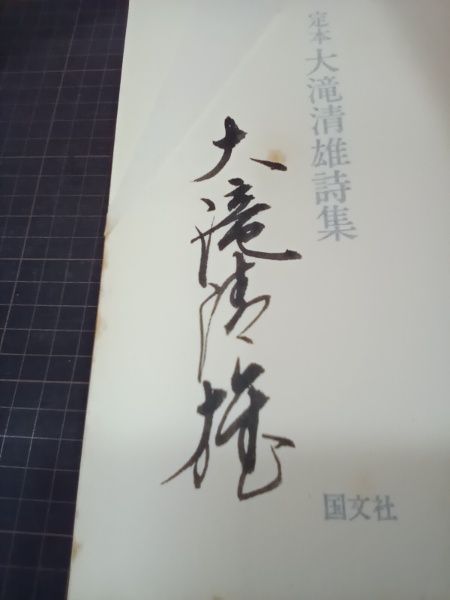 定本 大滝清雄詩集
大滝清雄
国文社